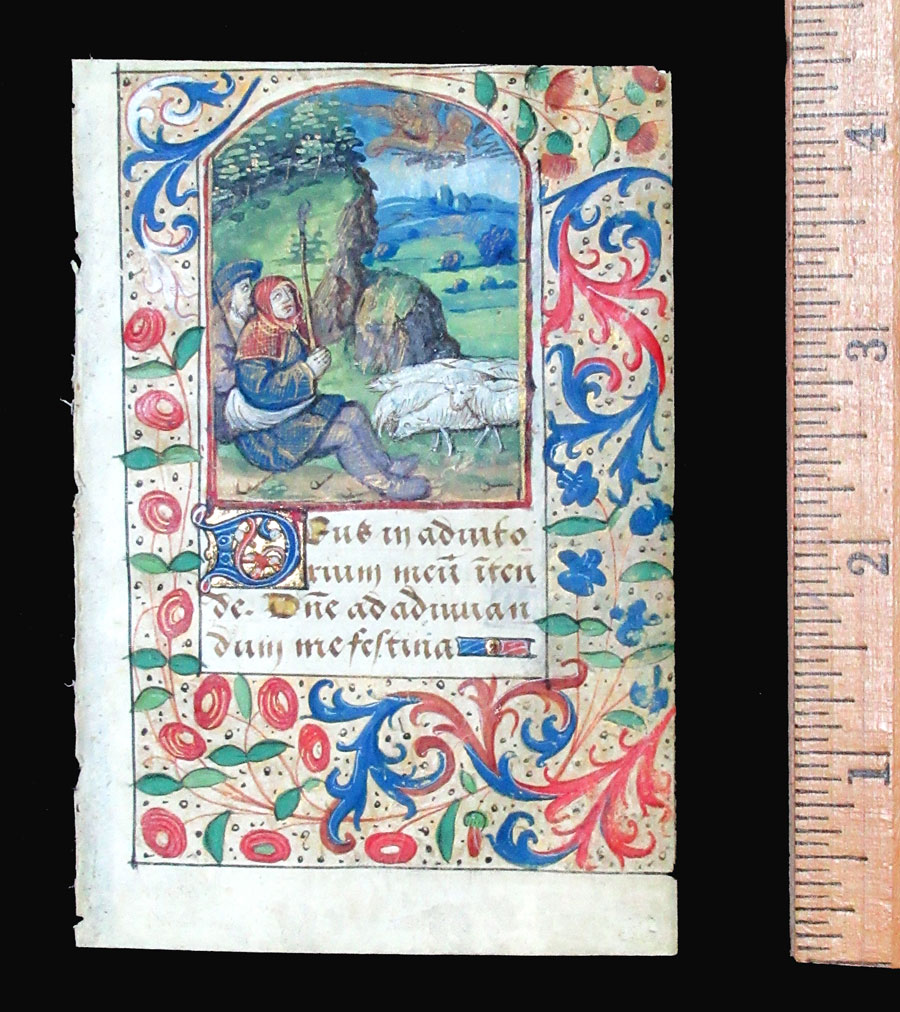 Deus in adiuto
rium meū īten
de. Dn̄e ad adiuuan
dum me festina
4
3
2
1